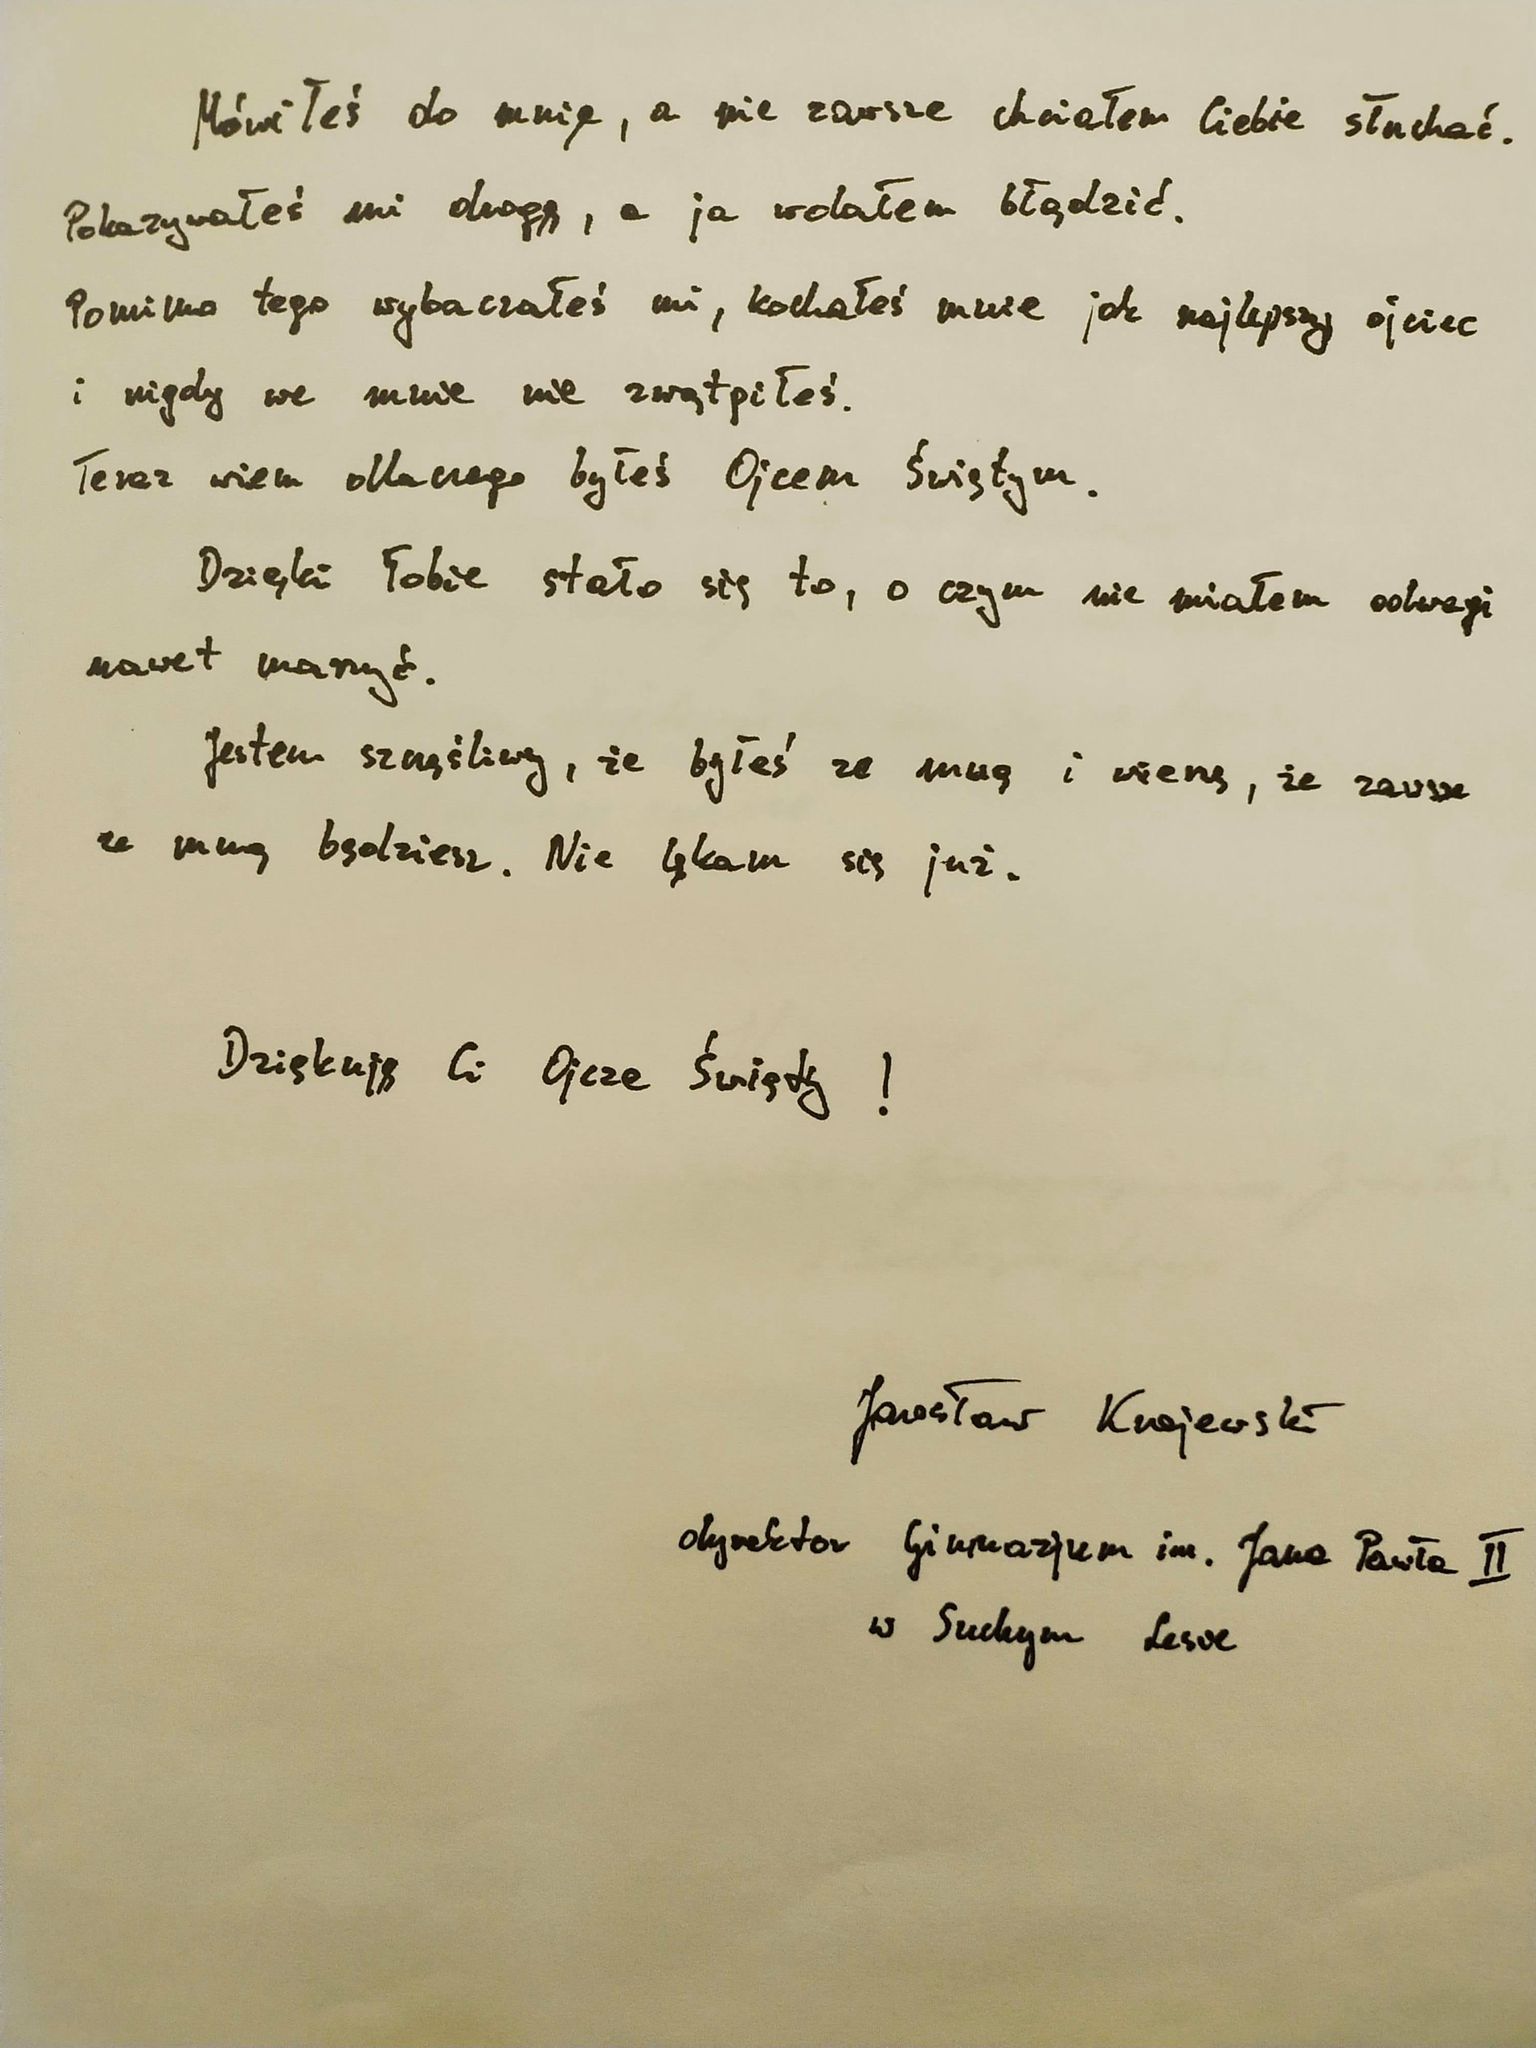 Mówiłeś do mnie, a nie zawsze chciałem Ciebie słuchać.
Pokazywałeś mi drogę, a ja wolałem błądzić.
Pomimo tego wybaczałeś mi, kochałeś mnie jak najlepszy ojciec
i nigdy we mnie nie zwątpiłeś.
Teraz wiem dlaczego byłeś Ojcem Świętym.
Dzięki Tobie stało się to, o czym nie miałem odwagi
nawet marzyć.
Jestem szczęśliwy, że byłeś ze mną i wierzę, że zawsze
ze mną będziesz. Nie lękam się już.
Dziękuję Ci Ojcze Święty!
Jarosław Krajewski
dyrektor Gimnazjum im. Jana Pawła II
w Suchym Lesie